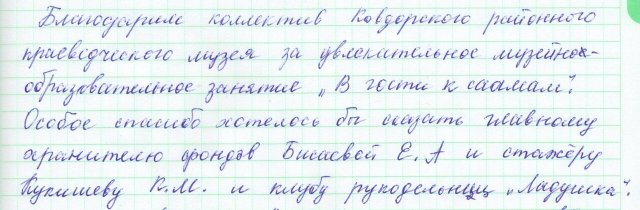 Благодарим коллектив Ковдорского районного
краеведческого музея за увлекательное музейно-
образовательное занятие „В гости к саамам".
Особое спасибо хотелось бы сказать главному
хранителю фондов Бисаевой Е.А и стажёру
Кукишеву К.М. и клубу рукодельниц „Ладушка".